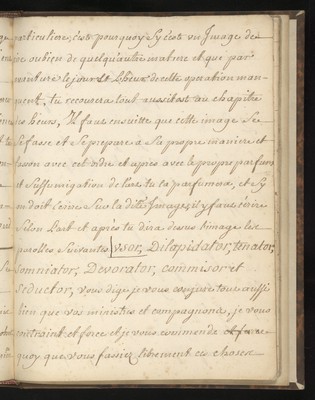 particuliere, c'est pourquoy Sy c'est un Image de
ou bien de quelqu'autre matiere et que par
aventure le jour et l'heure de cette operation man-
ment, tu recourera tout aussitost au chapitre
des heures, Il faut ensuitte que cette image Se
fasse et Se prepare a Sa propre maniere et
façon avec cet ordre et apres avec le propre parfum
et Suffumigation de l'art tu la parfumera, et Sy
on doit Ecrire Sur la ditte Image, il y faut écrire
Selon l'art et après tu dira dessus l'image les
parolles Suivantes, vsor, Dilapidator, tenator,
Somniator, Devorator, commisor et
Seductor, vous dige je vous conjure tout aussi
bien que vos ministres et compagnons, je vous
contraint et force et je vous commende
quoy que vous fassiez librement ces choses